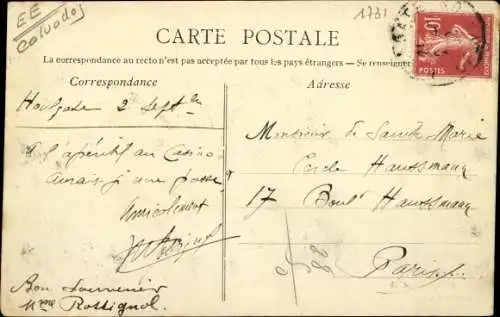 EE
Calvados
1731
CARTE POSTALE
La correspondance au recto n'est pas acceptée par tous les pays étrangers — Se renseigner
Correspondance
Adresse
10
POSTES
Houlgate 2 Septbre
A l'apéritif au Casino
aurais-j une passe
Amicalement
Bon Souvenir
Mme Rossignol
Monsieur de Sainte Marie
Cercle Haussmann
17 Boul^d Haussmann
Paris